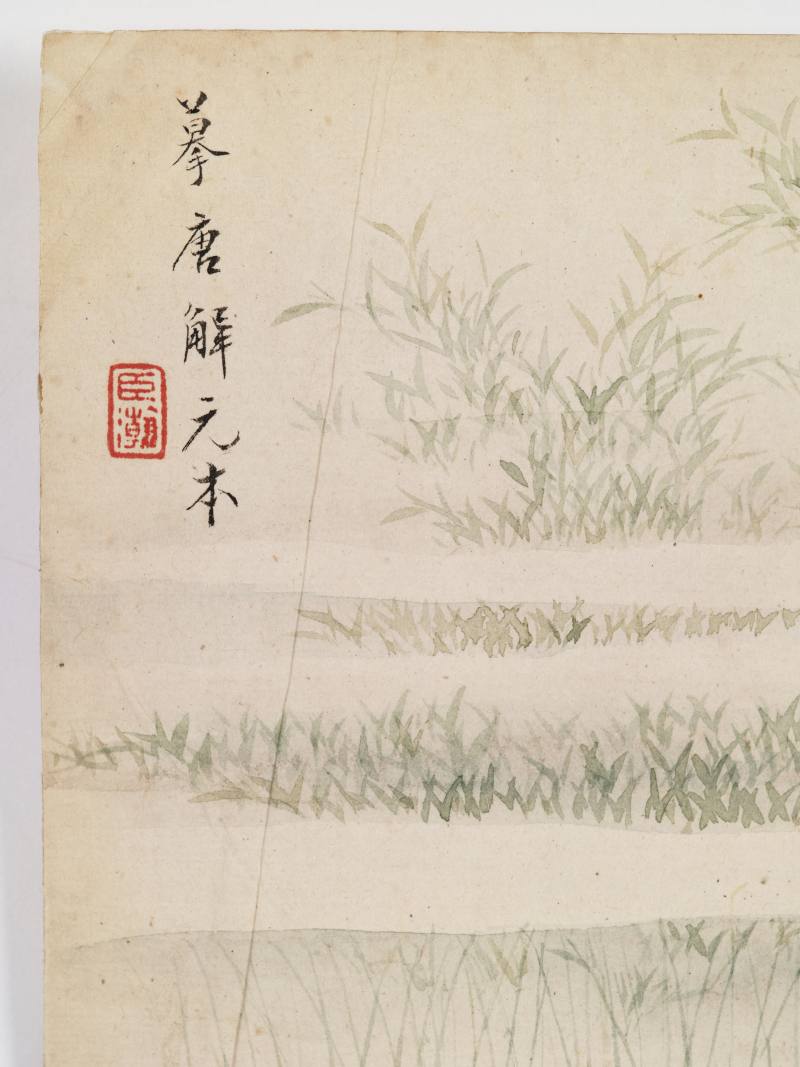 摹唐解元本
臣潮